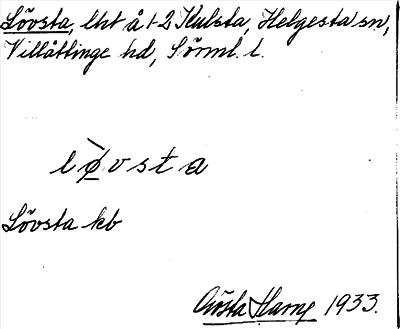 Lövsta, lht å 1-2 Kulsta, Helgesta sn,
Villåttinge hd, Sörml. l.
lø̀vsta
Lövsta kb
Gösta Harne 1933.